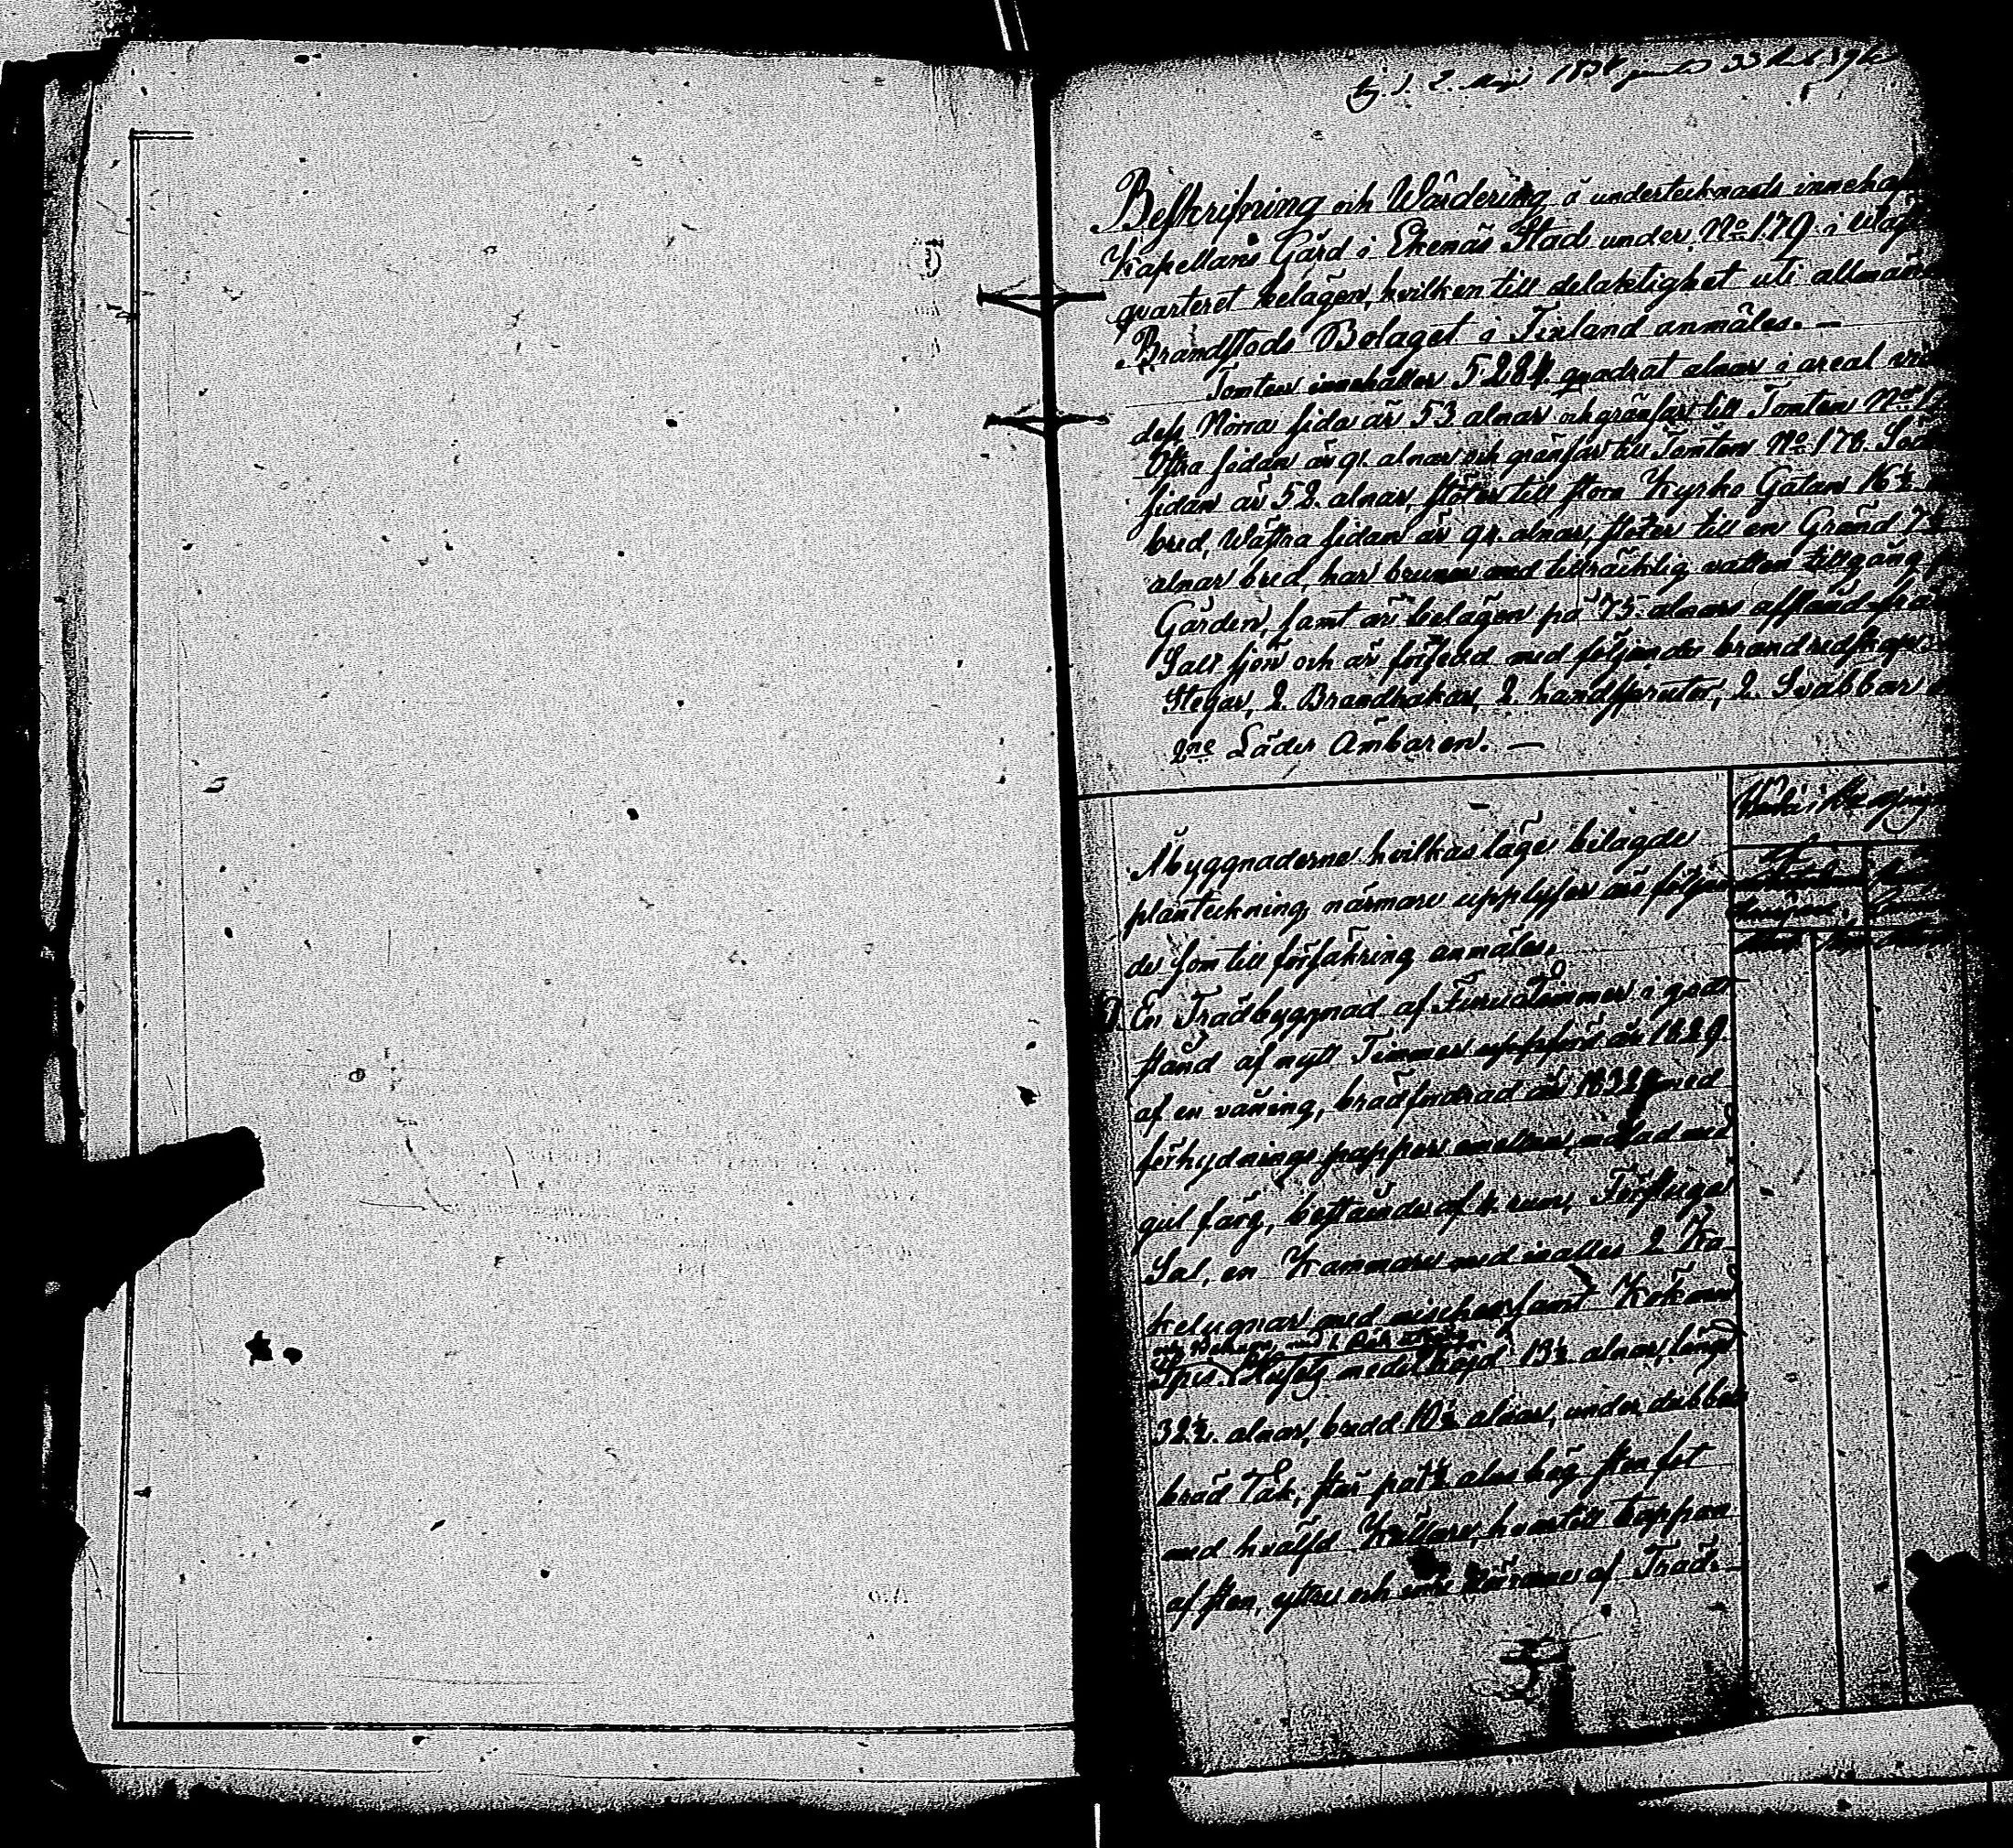 2. Maji 1834
Beskrifning och Wärdering å undertecknads innehaf
Kapellans Gård i Ekenäs Stad under No 179 i
quarteret belägen, hvilken till delaktighet uti allmän
Brandstods Bolaget i Finland anmäles. —
Tomten innehåller 5284 quadrat alnar i areal
dess Norra sida är 53 alnar och gränsar till Tomten No
Östra sidan är 91. alnar och gränsar till Tomten No 178. Söd
sidan är 52. alnar, stöter till stora Kyrko Gatan 16½
bred, Wästra sidan är 91. alnar, stöter till en Gränd 7
alnar bred, har brunn med tillräcklig vatten tillgång
Gården, samt är belägen på 75. alnars afstånd från
Salt sjön och är försedd med följande brandredskap:
Stegar, 2. Brandhakar, 2. handsprutor, 2. Svabbar
2ne Läder Ämbaren. —
Åbyggnaderne hvilkas läge bilagde
plantekning närmare upplyser äro följan
de som till försäkring anmäles.
En Trädbyggnad af Furu Timmer i godt
stånd af nytt Timmer uppförd år 1829.
af en våning, brädfodrad år 1832 med
förhydnings papper emellan, målad med
gul färg, bestående af 4. rum, Förstuga
Sal, en Kammare med inalles 2 Ka
kelugnar med nischer samt Kök med
Spis. Husets medelhöjd 13½ alnar, längd
32½. alnar, bredd 10½ alnar, under dubbelt
bräd Tak, står på ½ aln hög stenfot
med hvälfd Källare, hvartill trappan
af sten, yttre och inre dörrarne af Träd.